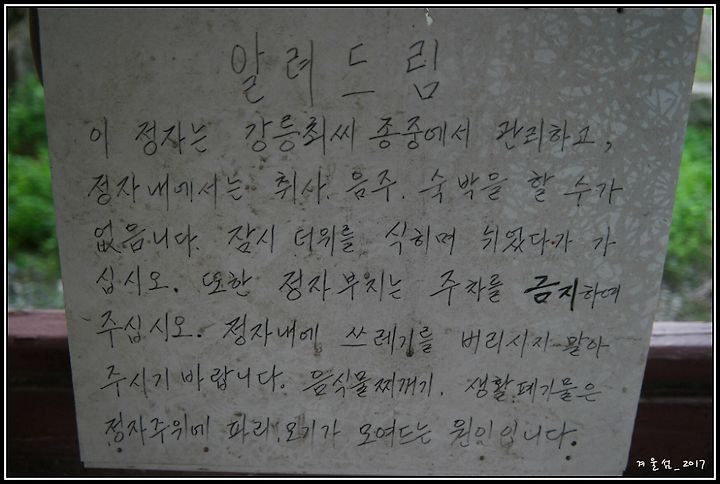 알려드림
이 정자는 강릉최씨 종중에서 관리하고,
정자내에서는 취사. 음주. 숙박을 할 수가
없음니다. 잠시 더위를 식히며 쉬었다가 가
십시오. 또한 정자부지는 주차를 금지하여
주십시오. 정자내에 쓰레기를 버리시지 말아
주시기 바랍니다. 음식물찌꺼기. 생활폐기물은
정자주위에 파리.모기가 모여드는 원인입니다.
겨울섬_2017